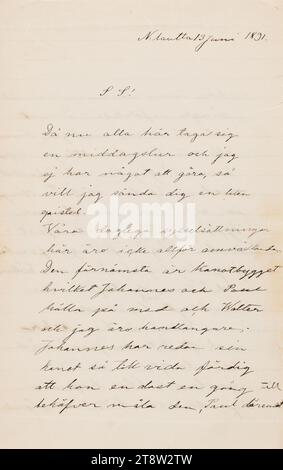 N. tautta 13 Juni 1891.
S S!
Då nu alla här taga sig
en middagslur och jag
ej har något att göra, så
vill jag sända dig en liten
epistel.
Våra dagliga sysselsättningar
här äro icke alltför omvexlande.
Den förnämsta är Kanotbygget
hvilket Johannes och Paul
hålla på med och Walter
och jag äro handlangare.
Johannes har redan sin
kanot så till vida färdig
att han en dast en gång till
behöfver måla den, Paul däremot
alamy
Image ID: 2T8W2TW
www.alamy.com